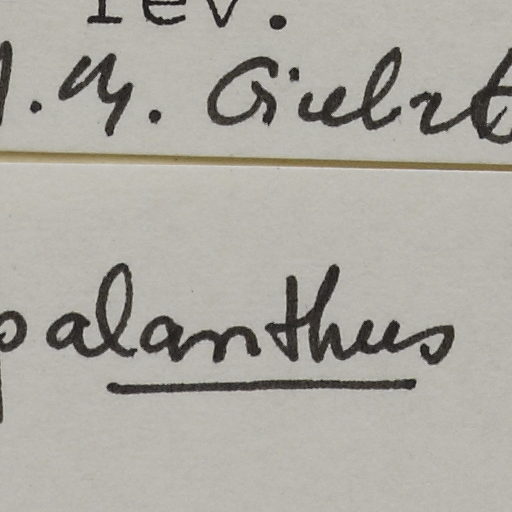 rev.
J. M. Giulzt
palanthus